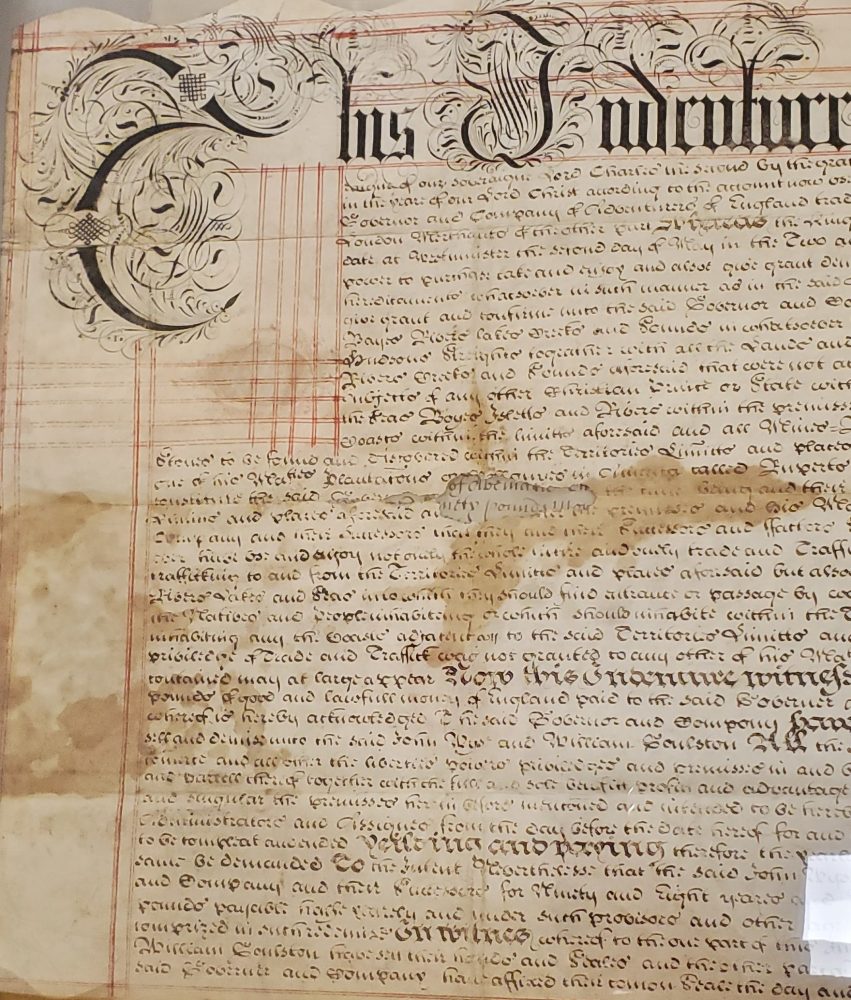 This Indenture
Raigne of our Soveraigne Lord Charles the Second by the grac
in the yeare of our Lord Christ according to the account now use
Governor and Company of Adventurers of England trad
London Merchants of the other part Whereas the King
date at Westminster the second day of May in the Two a
power to purchase take and enjoy and alsoe give grant dem
hereditaments whatsoever in such manner as in the said
give grant and confirme unto the said Governor and Co
Bayes Rivers lakes Creeks and Sounds in whatsoever
Hudsons Streights together with all the Lands and
Rivers Creeks and Sounds aforesaid that were not a
subjects of any other Christian Prince or State with
the Seas Bayes Isletts and Rivers within the premisses
Coasts within the limits aforesaid and all Mines
Stones to be found and Discovered within the Territories Limitts and places
one of his Majties Plantations or Collonies in America called Ruperts
constitute the said the time being and their
Limitts and places aforesaid and premisses and his Ma
Company and their Successors that they and their Successors and ffactors
ever have use and enjoy not onely the whole intire and onely trade and Traffi
trafficking to and from the Territories Limitts and places aforesaid but alsoe
Rivers Lakes and Seas into which they should find entrance or passage by
the Natives and people inhabiteing or which should inhabite within the T
inhabiting any the Coasts adjacent to the said Territories Limitts and
priviledge of Trade and Traffick was not granted to any other of his Ma
contained may at large appear Now this Indenture witnes
pounds of good and lawfull money of England paid to the said Governor
whereof is hereby acknowledged The said Governor and Company have
sell and demise unto the said John and William Goulston All the
and all other the liberties powers priviledges and premisses in and
and parcell thereof together with the full and sole benefitt profitt and advantage
and singular the premisses herein before mentioned and intended to be hereby
Administrators and Assignes from the day before the date hereof for and
to be compleat and ended Yeilding and paying therefore the yearl
same be demanded To the Intent Nevertheless that the said John
and Company and their Successors for Ninety and Eight yeares
pounds payable halfe yearely and under such provisoes and other
comprized in such redemise In witnes whereof to the one part of this
William Goulston have sett their hands and Seales and the other part
said Governor and Company have affixed their comon Seale the day and